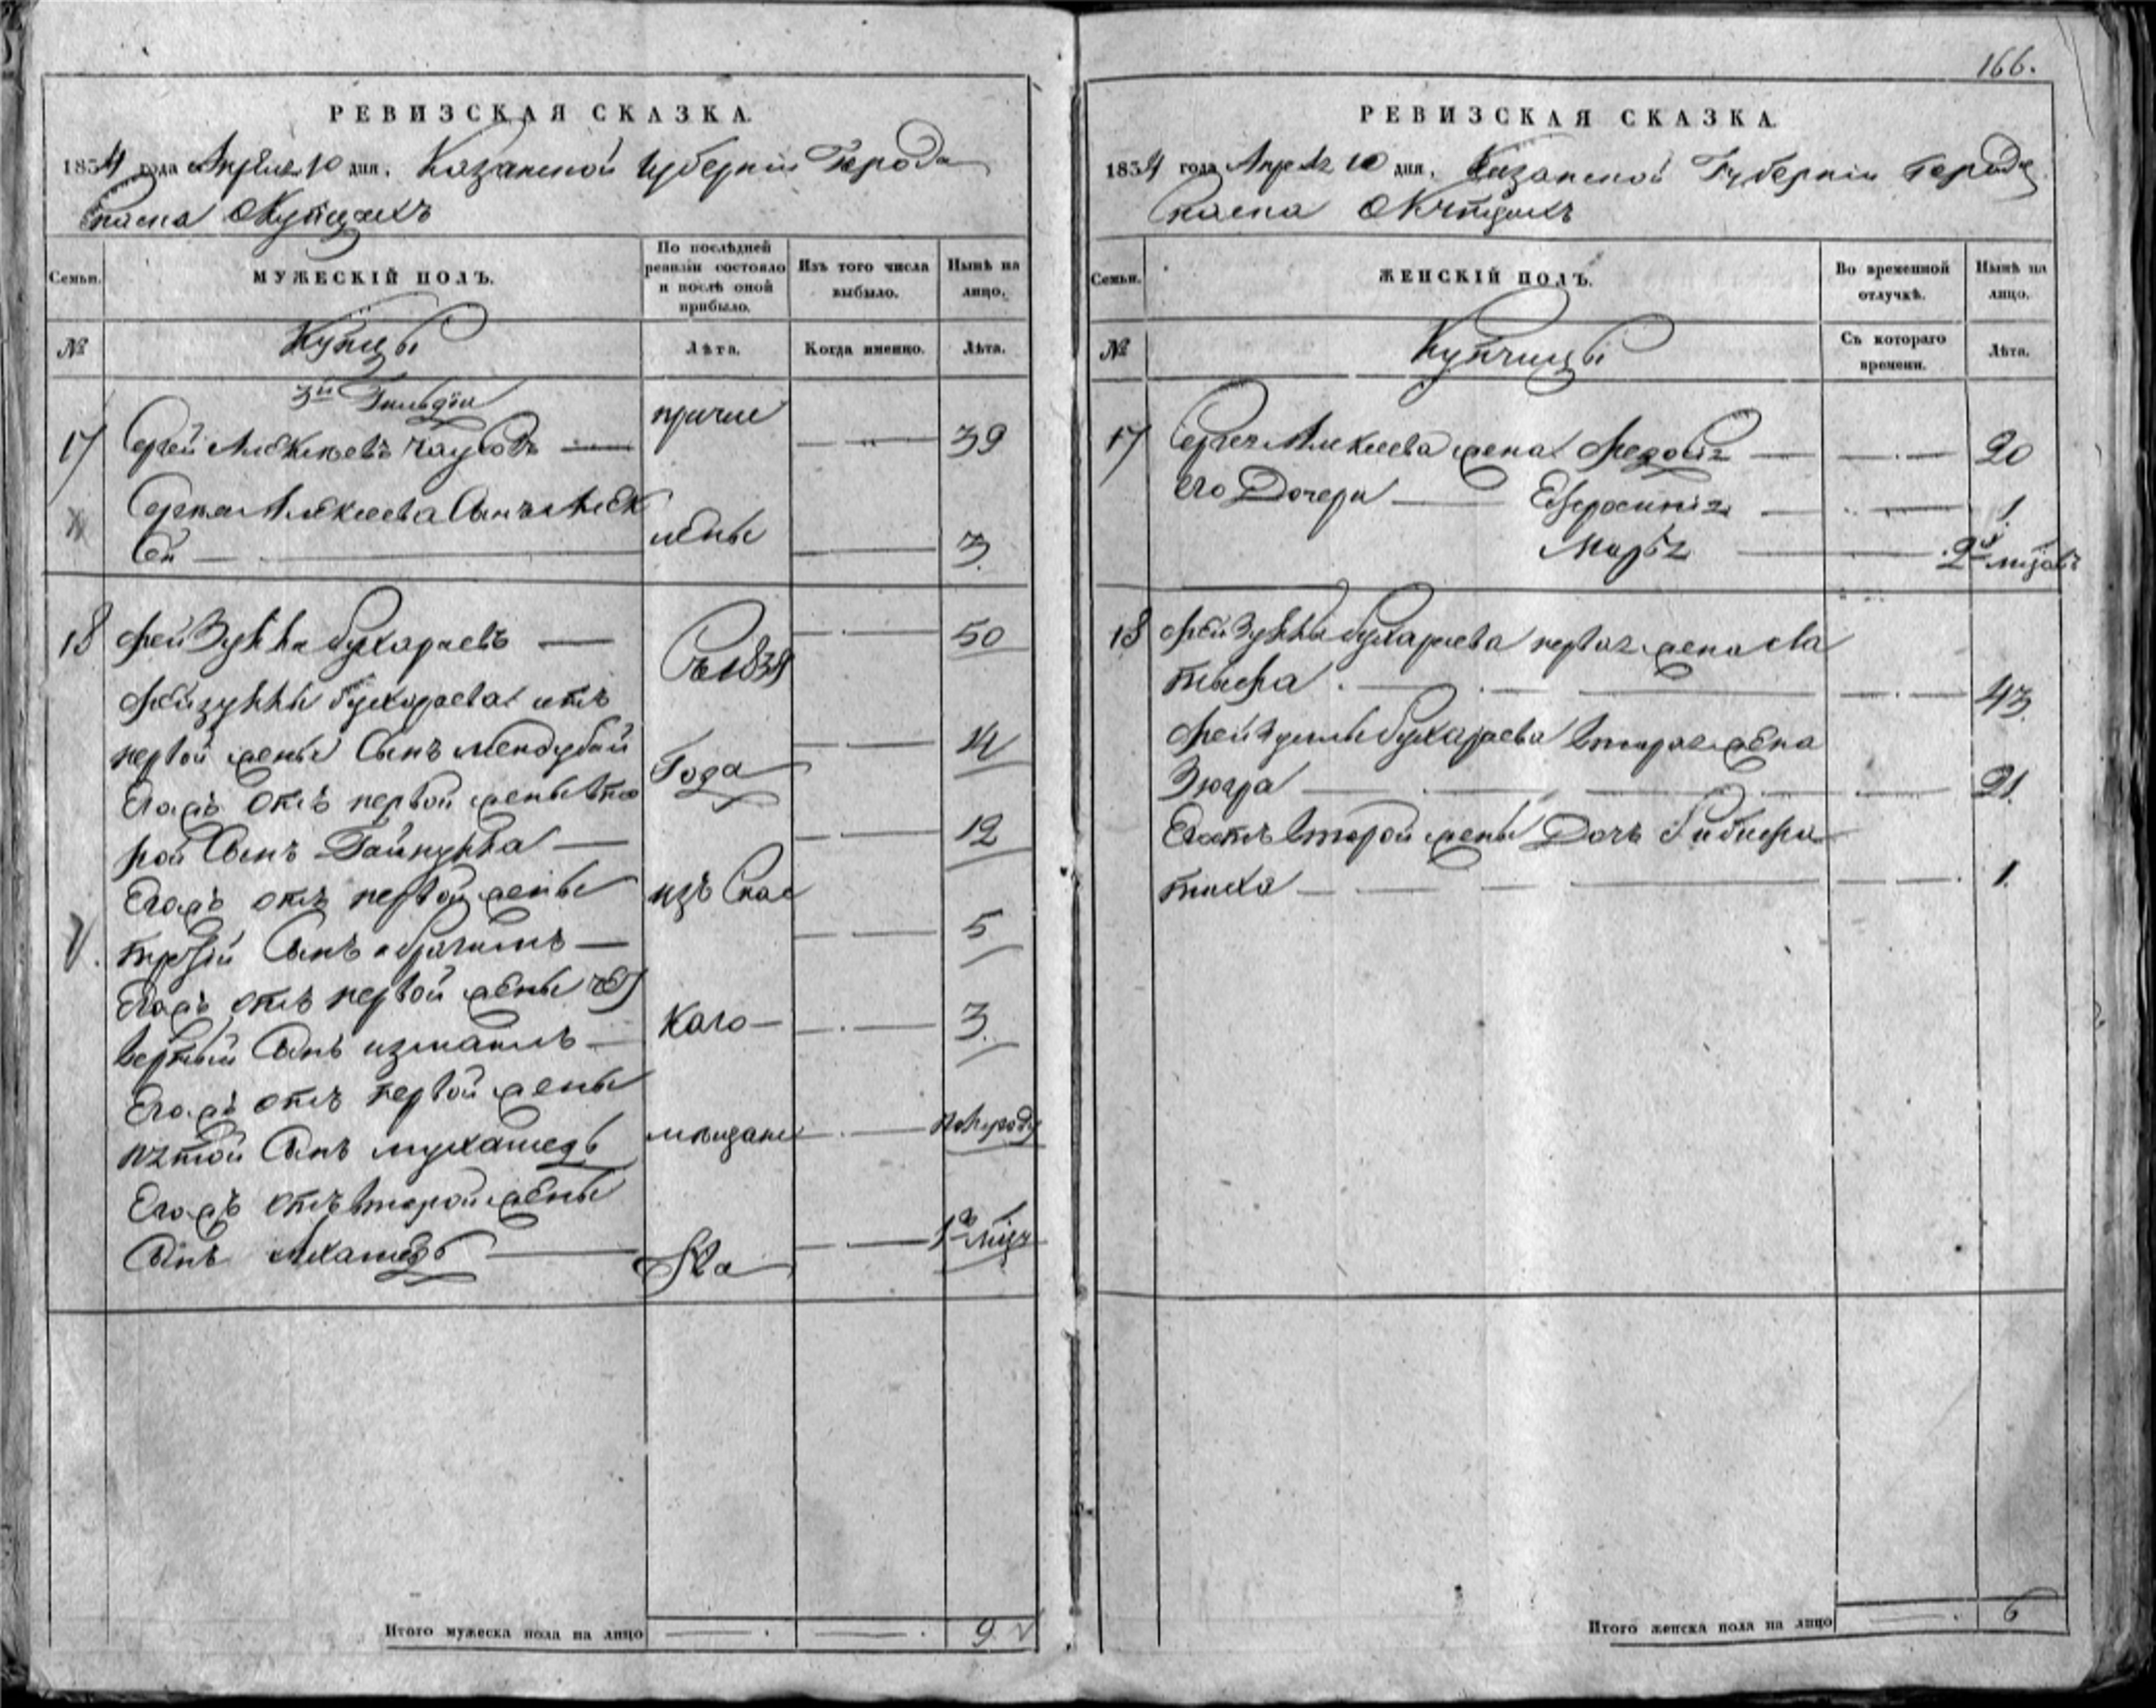 РЕВИЗСКАЯ СКАЗКА.
1834 года Апреля 10 дня, Казанской Губерніи Города
Спаска О Купцахъ
Семьи.
МУЖЕСКІЙ ПОЛЪ.
По послѣдней ревизіи состояло и послѣ оной прибыло.
Изъ того числа выбыло.
Нынѣ на лицо.
№
Купцы
Лѣта.
Когда именно.
Лѣта.
3й Гильдіи
причис
17 Сергей Алексеевъ 39
Сергея Алексеева Сынъ Алек
лены
сей 3.
18 Фейзулла Бухараевъ 50
Съ 1834
Фейзуллы Бухараева отъ
первой жены Сынъ 14
Года
Егожъ отъ первой жены вто
рой Сынъ Гайнулла 12
Егожъ отъ первой жены
изъ Спас
третій Сынъ Ибрагимъ 5
Егожъ отъ первой жены чет
вертый Сынъ Измаилъ 3.
каго
Егожъ отъ первой жены
пятой Сынъ Мухамедъ полугоду
мещанс
Егожъ отъ второй жены
Сынъ Ахамедъ
тва
Итого мужеска пола на лицо 9
166.
РЕВИЗСКАЯ СКАЗКА.
1834 года Апреля 10 дня, Казанской Губерніи Города
Спаска О Купцахъ
Семьи.
ЖЕНСКІЙ ПОЛЪ.
Во временной отлучкѣ.
Нынѣ на лицо.
№
Купчихи
Съ котораго времени.
Лѣта.
17 Сергея Алексеева жена Федосья 20
его Дочери Ефросинія 1.
Марья
18 Фейзуллы Бухараева первая жена
43.
Фейзуллы Бухараева вторая жена
Зюгра 21.
Его отъ второй жены Дочь Бибифа
тиха 1.
Итого женска пола на лицо 6